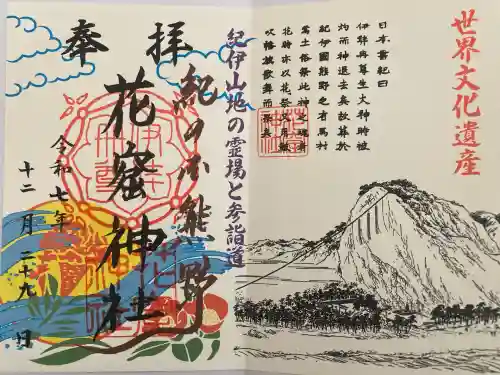 世界文化遺産
日本書紀曰
伊弉冉尊生火神時被
灼而神退去矣故葬於
紀伊國熊野之有馬村
焉土俗祭此神之魂者
花時亦以花祭又用鼓
吹幡旗歌舞而祭矣
紀伊山地の霊場と参詣道
奉拝
紀の国熊野
花窟神社
令和七年
十二月二十九日